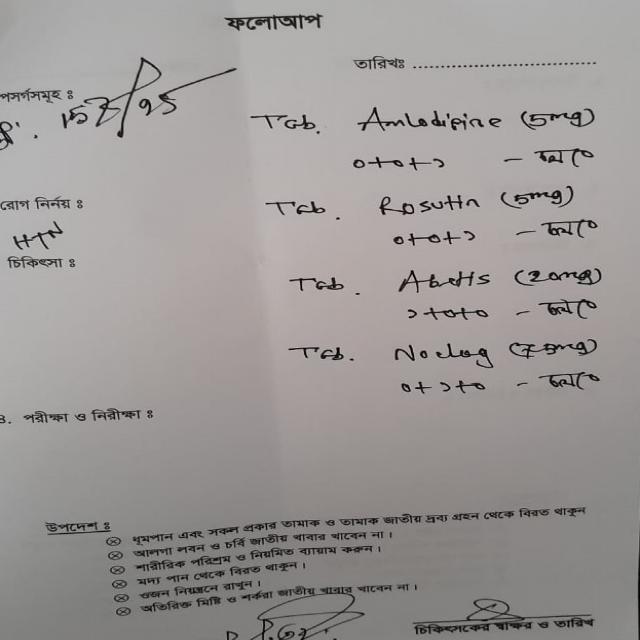 ফলোআপ
তারিখঃ
পসর্গসমূহ ঃ
Tab. Amlodipine (5mg)
০+০+১ - চলবে
রোগ নির্নয় ঃ
Tab. (5mg)
০+০+১ - চলবে
HTN
চিকিৎসা ঃ
Tab. Abetis (20mg)
১+০+০ - চলবে
Tab. Noclog (75mg)
০+১+০ - চলবে
৪. পরীক্ষা ও নিরীক্ষা ঃ
উপদেশ ঃ
ধূমপান এবং সকল প্রকার তামাক ও তামাক জাতীয় দ্রব্য গ্রহন থেকে বিরত থাকুন
আলগা লবন ও চর্বি জাতীয় খাবার খাবেন না।
শারীরিক পরিশ্রম ও নিয়মিত ব্যায়াম করুন।
মদ্য পান থেকে বিরত থাকুন।
ওজন নিয়ন্ত্রনে রাখুন।
অতিরিক্ত মিষ্টি ও শর্করা জাতীয় খাবার খাবেন না।
চিকিৎসকের স্বাক্ষর ও তারিখ